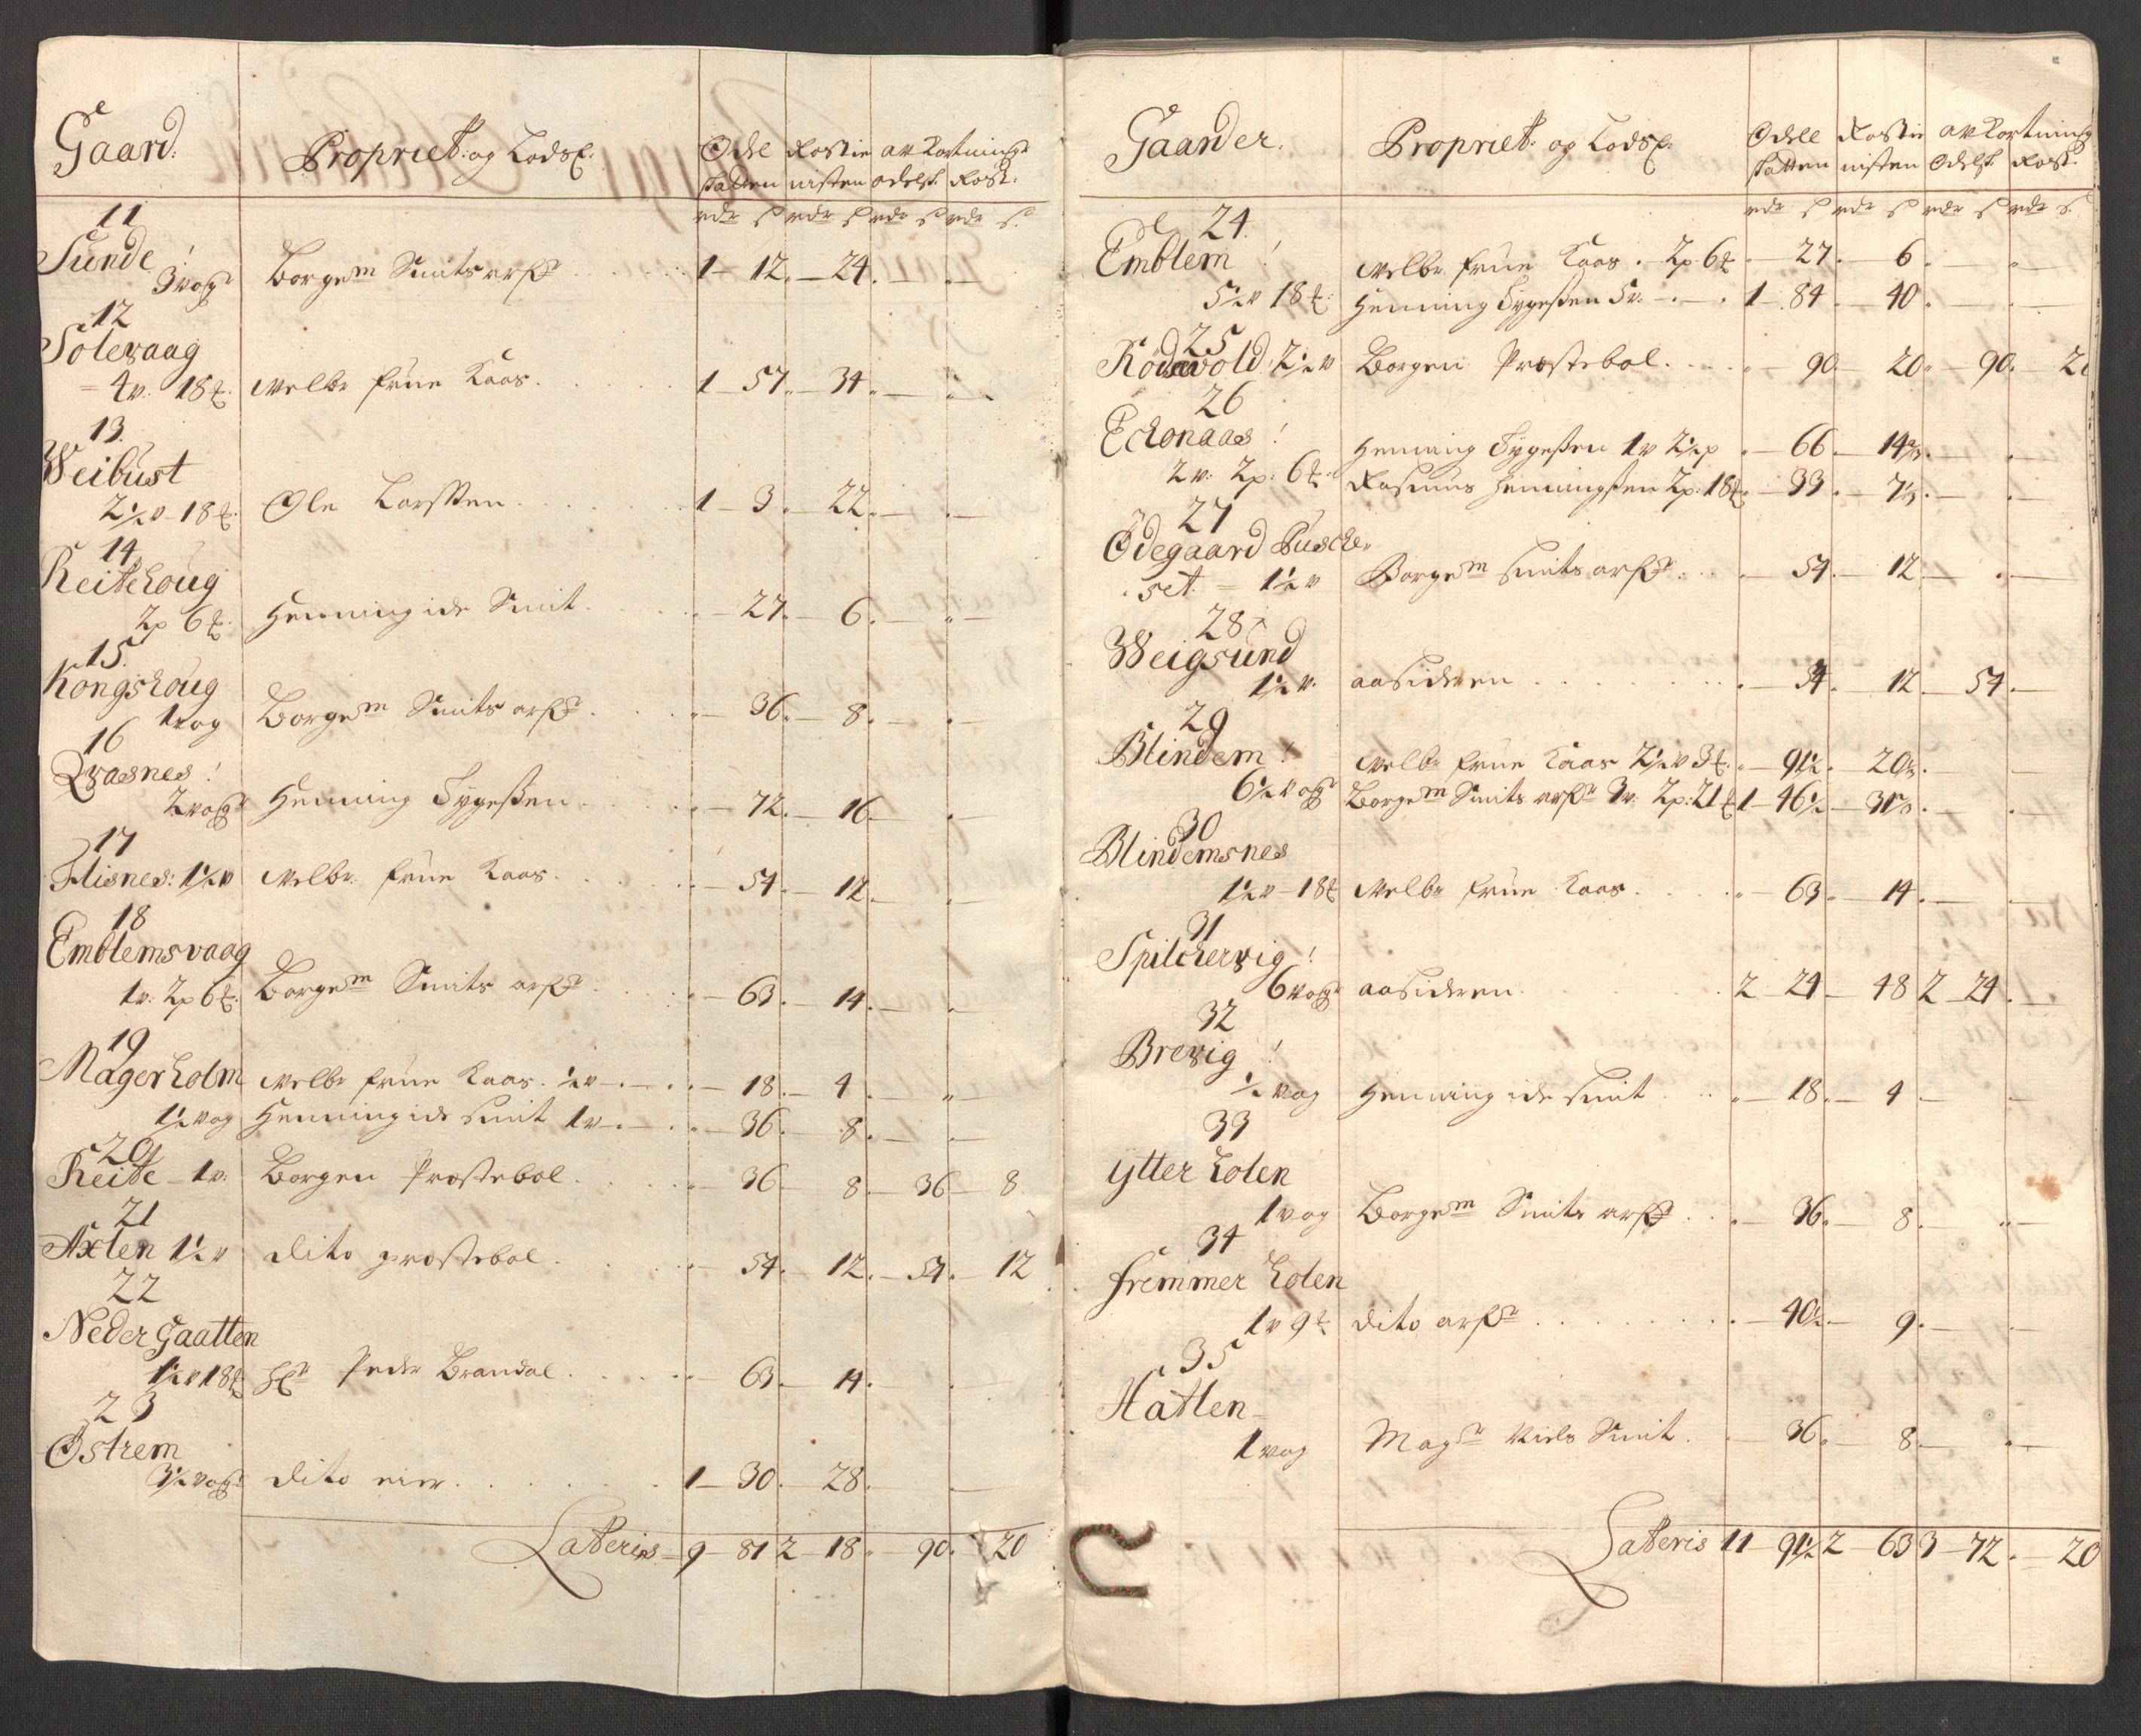 Gaard: Propriet: og Lodsf: Odel Rostie avkortning
Skatten nisten odelsk: Rost:
rdr s rdr s rdr s rdr s
11
Sunde 3 vogr Borgem Smits arf: 1 - 12 - 24
12
Solevaag
4 v: 18 Velbr frue Kaas 1 - 57 - 34
13
Weibust
2½ v - 18 Ole Larssen 1 - 3 - 22
14
Reitehoug
2p 6 Henning ide Smit - 27 - 6
15
Kongshoug
1 vog Borgem Smits arf: - 36 - 8
16
Qvasnes
2 vogr Henning Tygessen - 72 - 16
17
Flisnes: 1½ v Velbr: frue Kaas - 54 - 12
18
Emblemsvaag
1v: 2p 6 Borgem Smits arf: - 63 - 14
19
Magerholm Velbr frue Kaas ½ v - 18 - 4
1½ vog Henning ide Smit 1 v - 36 - 8
20
Reite - 1v: Borgen Prostebol - 36 - 8 - 36 - 8
21
Axlen 1½ v Dito prostebol - 54 - 12 - 54 - 12
22
Neder Gaatten
1½ v 18 Hr Peder Brandal - 63 - 14
23
Ostrem
3½ vogr dito eier 1 - 30 - 28
Lateris - 9 - 81 2 - 18 - 90 - 20
Gaarder: Propriet: og Lodsf: Odell Rostie avkortning
Skatten nisten Odelsk: Rost:
rdr s rdr s rdr s rdr s
24
Emblem Velbr frue Kaas 2p. 6 - 27 - 6
5½ v 18 Henning Tygessen 5v. 1 - 84 - 40
25
Rödsevold 2½ v Borgen Prostebol - 90 - 20 - 90 - 20
26
Eckonaas Henning Tygessen 1v 2½ p - 66 - 14⅔
2v: 2p: 6 Rasmus Henningsen 2p: 18 - 33 - 7⅓
27
Ödegaard Busche
set = 1½ v Borgem Smits arf: - 54 - 12
28
Weigsund
1½ v: aasideren - 54 - 12 - 54
29
Blindem Velbr frue Kaas 2½ v 3 - 91½ - 20⅓
6½ vogr Borgem Smits arf: 3v: 2p: 21 1 - 46½ - 31⅔
30
Blindemsnes
1½ v - 18 Velbr frue Kaas - 63 - 14
31
Spilchervig
6 vogr aasideren 2 - 24 - 48 2 - 24
32
Brevig
½ vog Henning ide Smit - 18 - 4
33
ytter holen
1 vog Borgem Smits arf: - 36 - 8
34
fremmer holen
1v 9 dito arf: - 40½ - 9
35
Hatlen
1 vog Magr Niels Smit - 36 - 8
Lateris 11 - 91½ 2 - 63 3 - 72 - 20